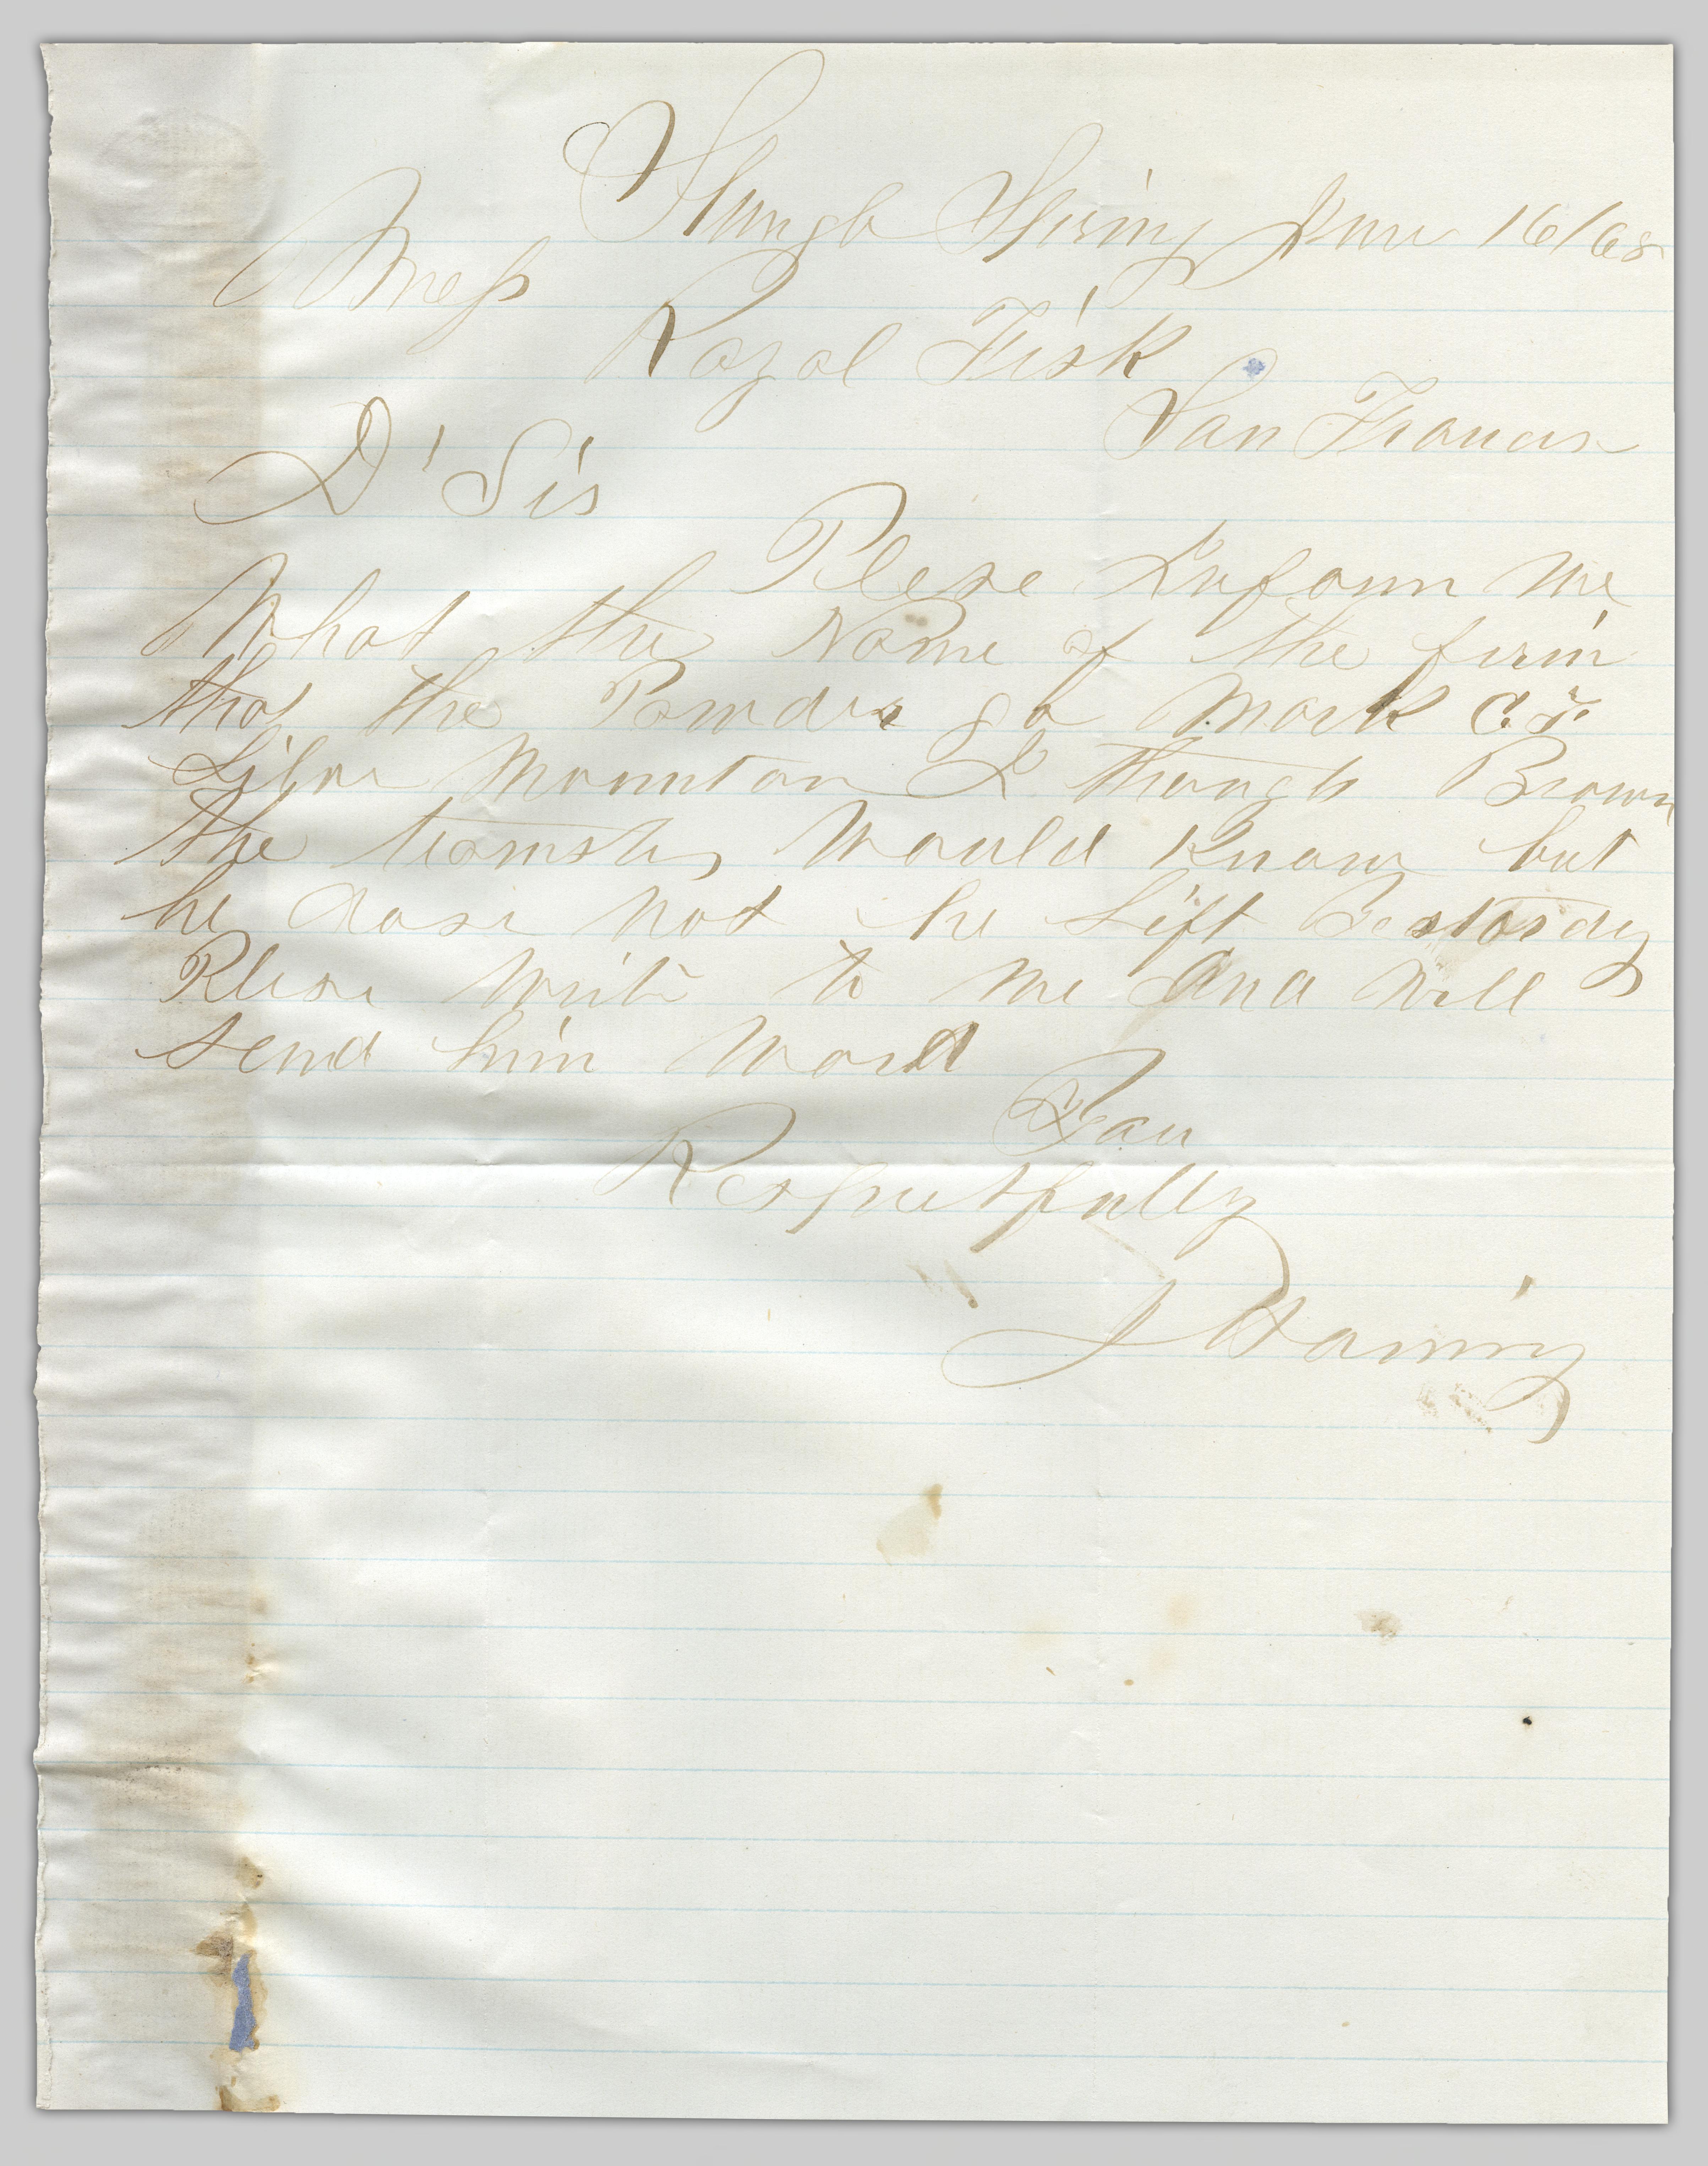 Shungle Spring June 16/68
Mess
Royal Fisk
San Francis
D' Sis
Plese Inform me
What the Name of the firm
that the Powder go Mark C.F.
Silver Mountan I though Brown
the teamster Would Know but
he dose not he Left Yestorday
Plese Write to me and Will
send him Word
Respectfully
J